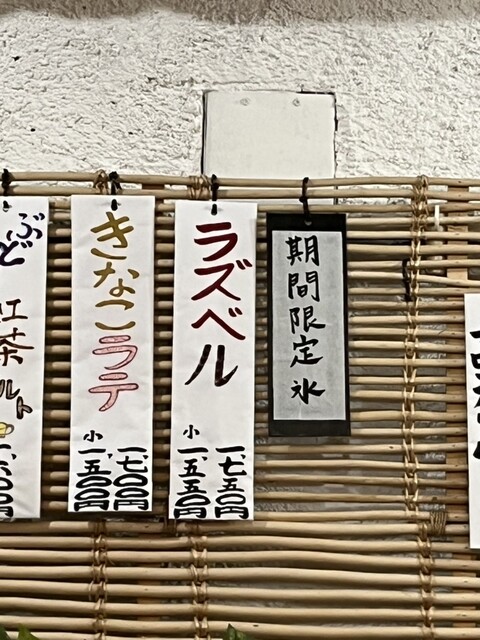 期間限定氷
ラズベル
一、七五〇円
小 一、五五〇円
きなこラテ
一、七〇〇円
小 一、五〇〇円
ぶど
紅茶
ルト